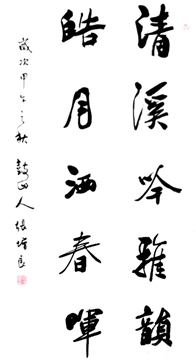 清溪吟雅韻
皓月洒春暉
歲次甲午之秋 鼓山人 張增良